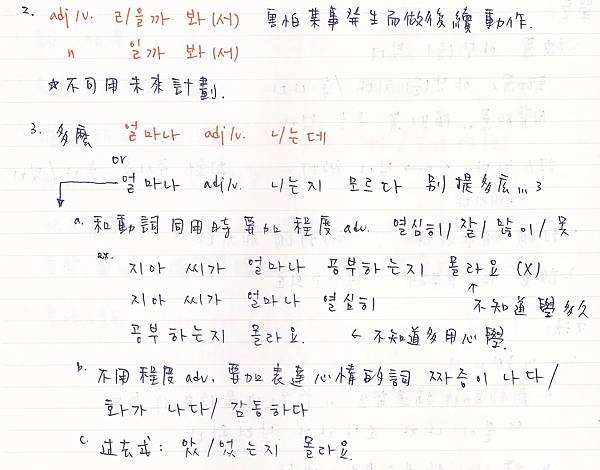 2. adj/v. ㄹ/을까 봐(서) 害怕某事發生而做後續動作.
n 일까 봐(서)
☆不可用未來計劃.
3. 多麼 얼마나 adj/v. ㄴ/는데
or
얼마나 adj/v. ㄴ/는지 모르다 別提多麼...了
a. 和動詞同用時要加程度adv. 열심히/잘/많이/못
ex. 지아 씨가 얼마나 공부하는지 몰라요 (X)
지아 씨가 얼마나 열심히 ↑不知道學多久
공부하는지 몰라요. ← 不知道多用心學.
b. 不用程度adv. 要加表達心情的詞 짜증이 나다/
화가 나다/ 감동하다
c. 过去式: 았/었는지 몰라요